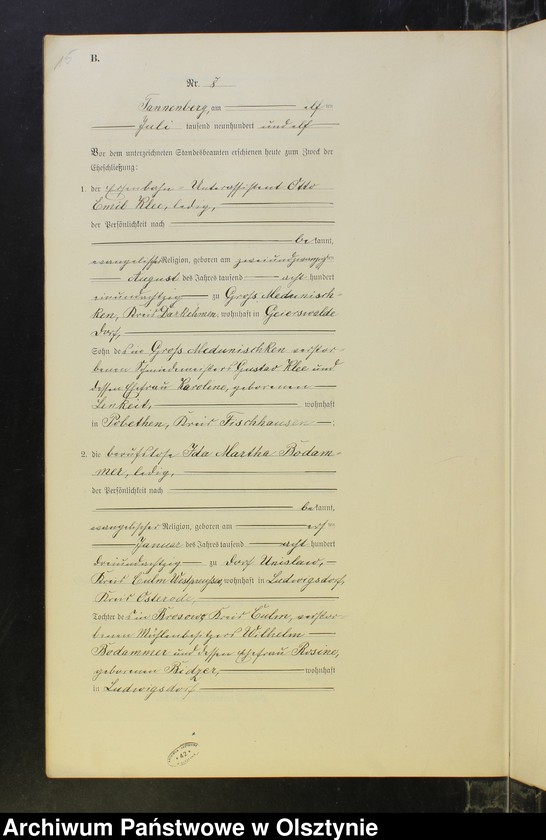 15
B.
Nr. 8
Tannenberg, am elf ten
Juli tausend neunhundert und elf
Vor dem unterzeichneten Standesbeamten erschienen heute zum Zweck der
Eheschließung:
1. der Eisenbahn-Unterassistent Otto
Emil Klee, ledig,
der Persönlichkeit nach
be kannt,
evangelischer Religion, geboren am zweiundzwanzigsten
August des Jahres tausend acht hundert
zu Groß Medunisch-
ken, Kreis Darkehmen, wohnhaft in Geierswalde
Dorf,
Sohn des in Groß Medunischken verstor-
benen Schmiedemeisters Gustav Klee und
dessen Ehefrau Karoline, geborenen
wohnhaft
in Pobethen, Kreis Fischhausen
2. die berufslose Ida Martha Bodam-
mer, ledig,
der Persönlichkeit nach
be kannt,
evangelischer Religion, geboren am elf ten
Januar des Jahres tausend acht hundert
dreiundachtzig zu Dorf Unislaw,
Kreis Culm Westpreußen, wohnhaft in Ludwigsdorf,
Kreis Osterode,
Tochter des in Kreis Culm, verstor-
benen Mühlenbesitzers Wilhelm
Bodammer und dessen Ehefrau Rosine,
geborenen wohnhaft
in Ludwigsdorf
42
Archiwum Państwowe w Olsztynie